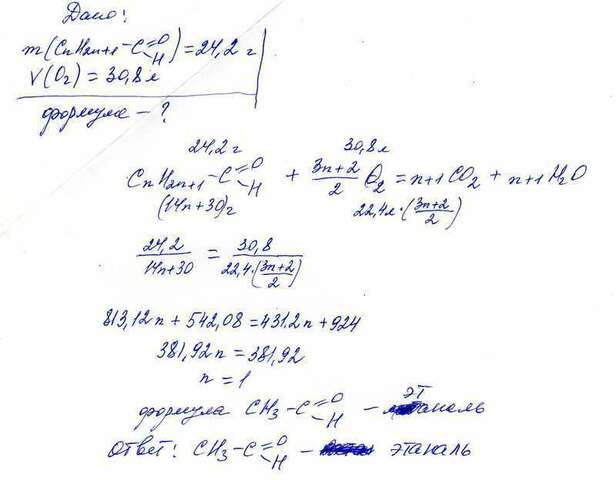 Дано:
m(CnH2n+1-C=O H) = 24,2 г
V(O2) = 30,8 л
формула - ?
24,2 г 30,8 л
CnH2n+1-C=O H + 3n+2/2 O2 = n+1 CO2 + n+1 H2O
(14n+30)г 22,4л·(3n+2/2)
24,2/14n+30 = 30,8/22,4·(3n+2/2)
813,12n + 542,08 = 431.2n + 924
381,92n = 381,92
n = 1
формула CH3-C=O H - этаналь
Ответ: CH3-C=O H - этаналь